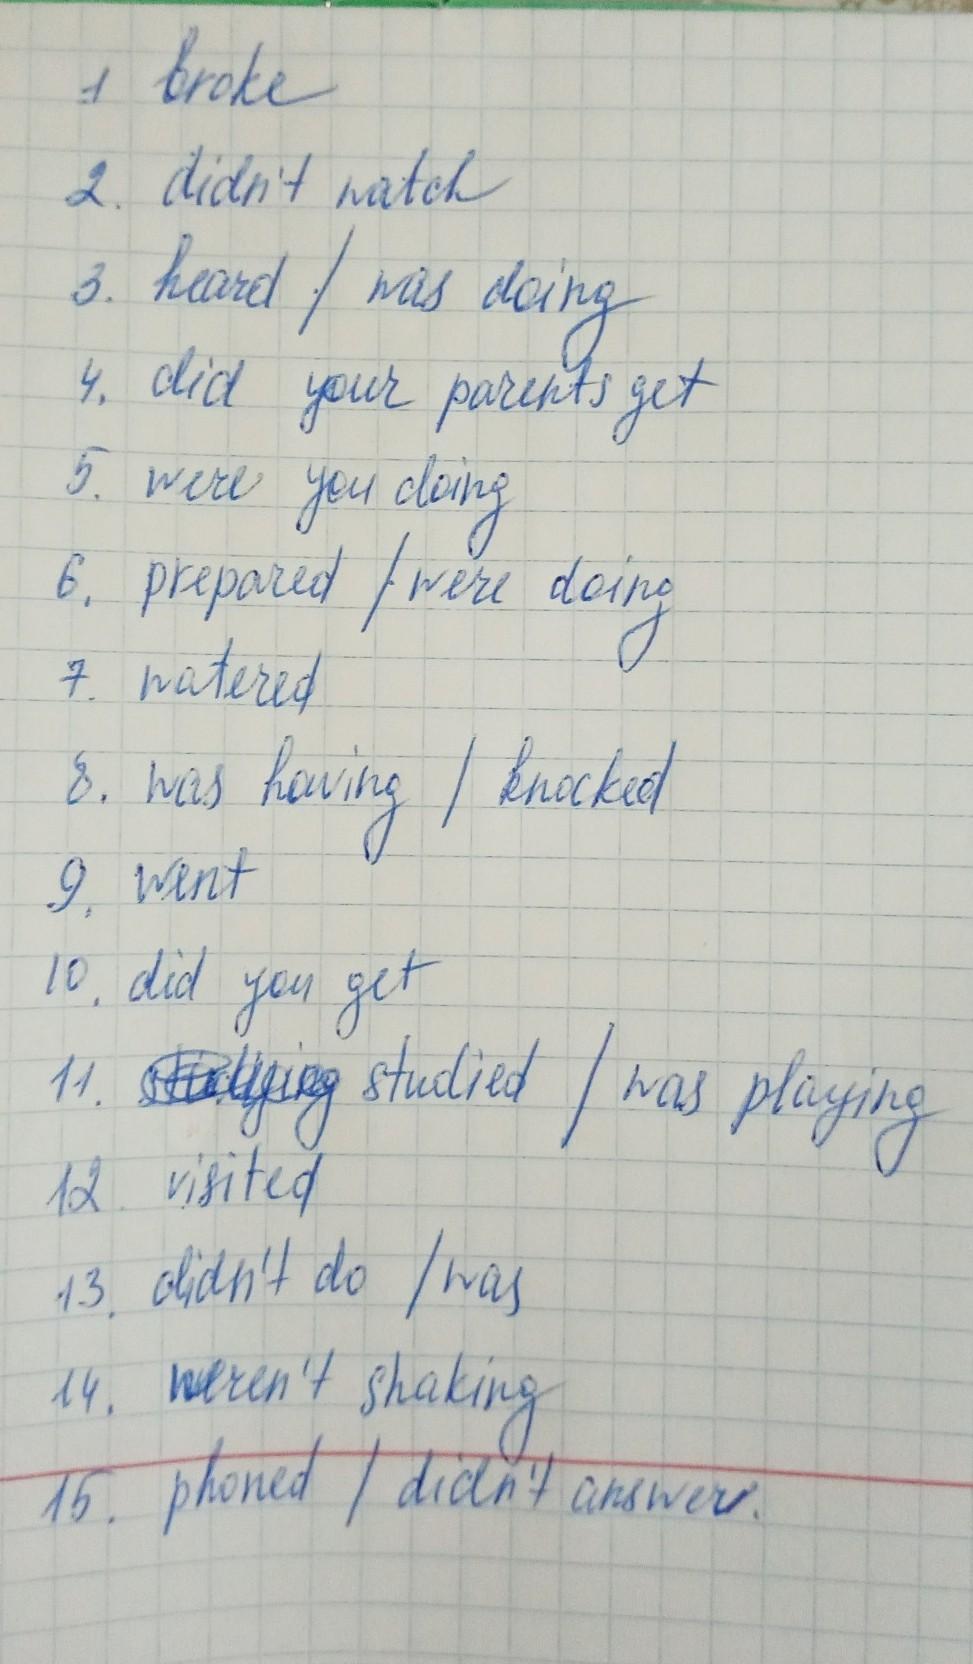 1 broke
2. didn't watch
3. heard / was doing
4. did your parents get
5. were you doing
6. prepared / were doing
7. watered
8. was having / knocked
9. went
10. did you get
11. studied / was playing
12. visited
13. didn't do / was
14. weren't shaking
15. phoned / didn't answer.